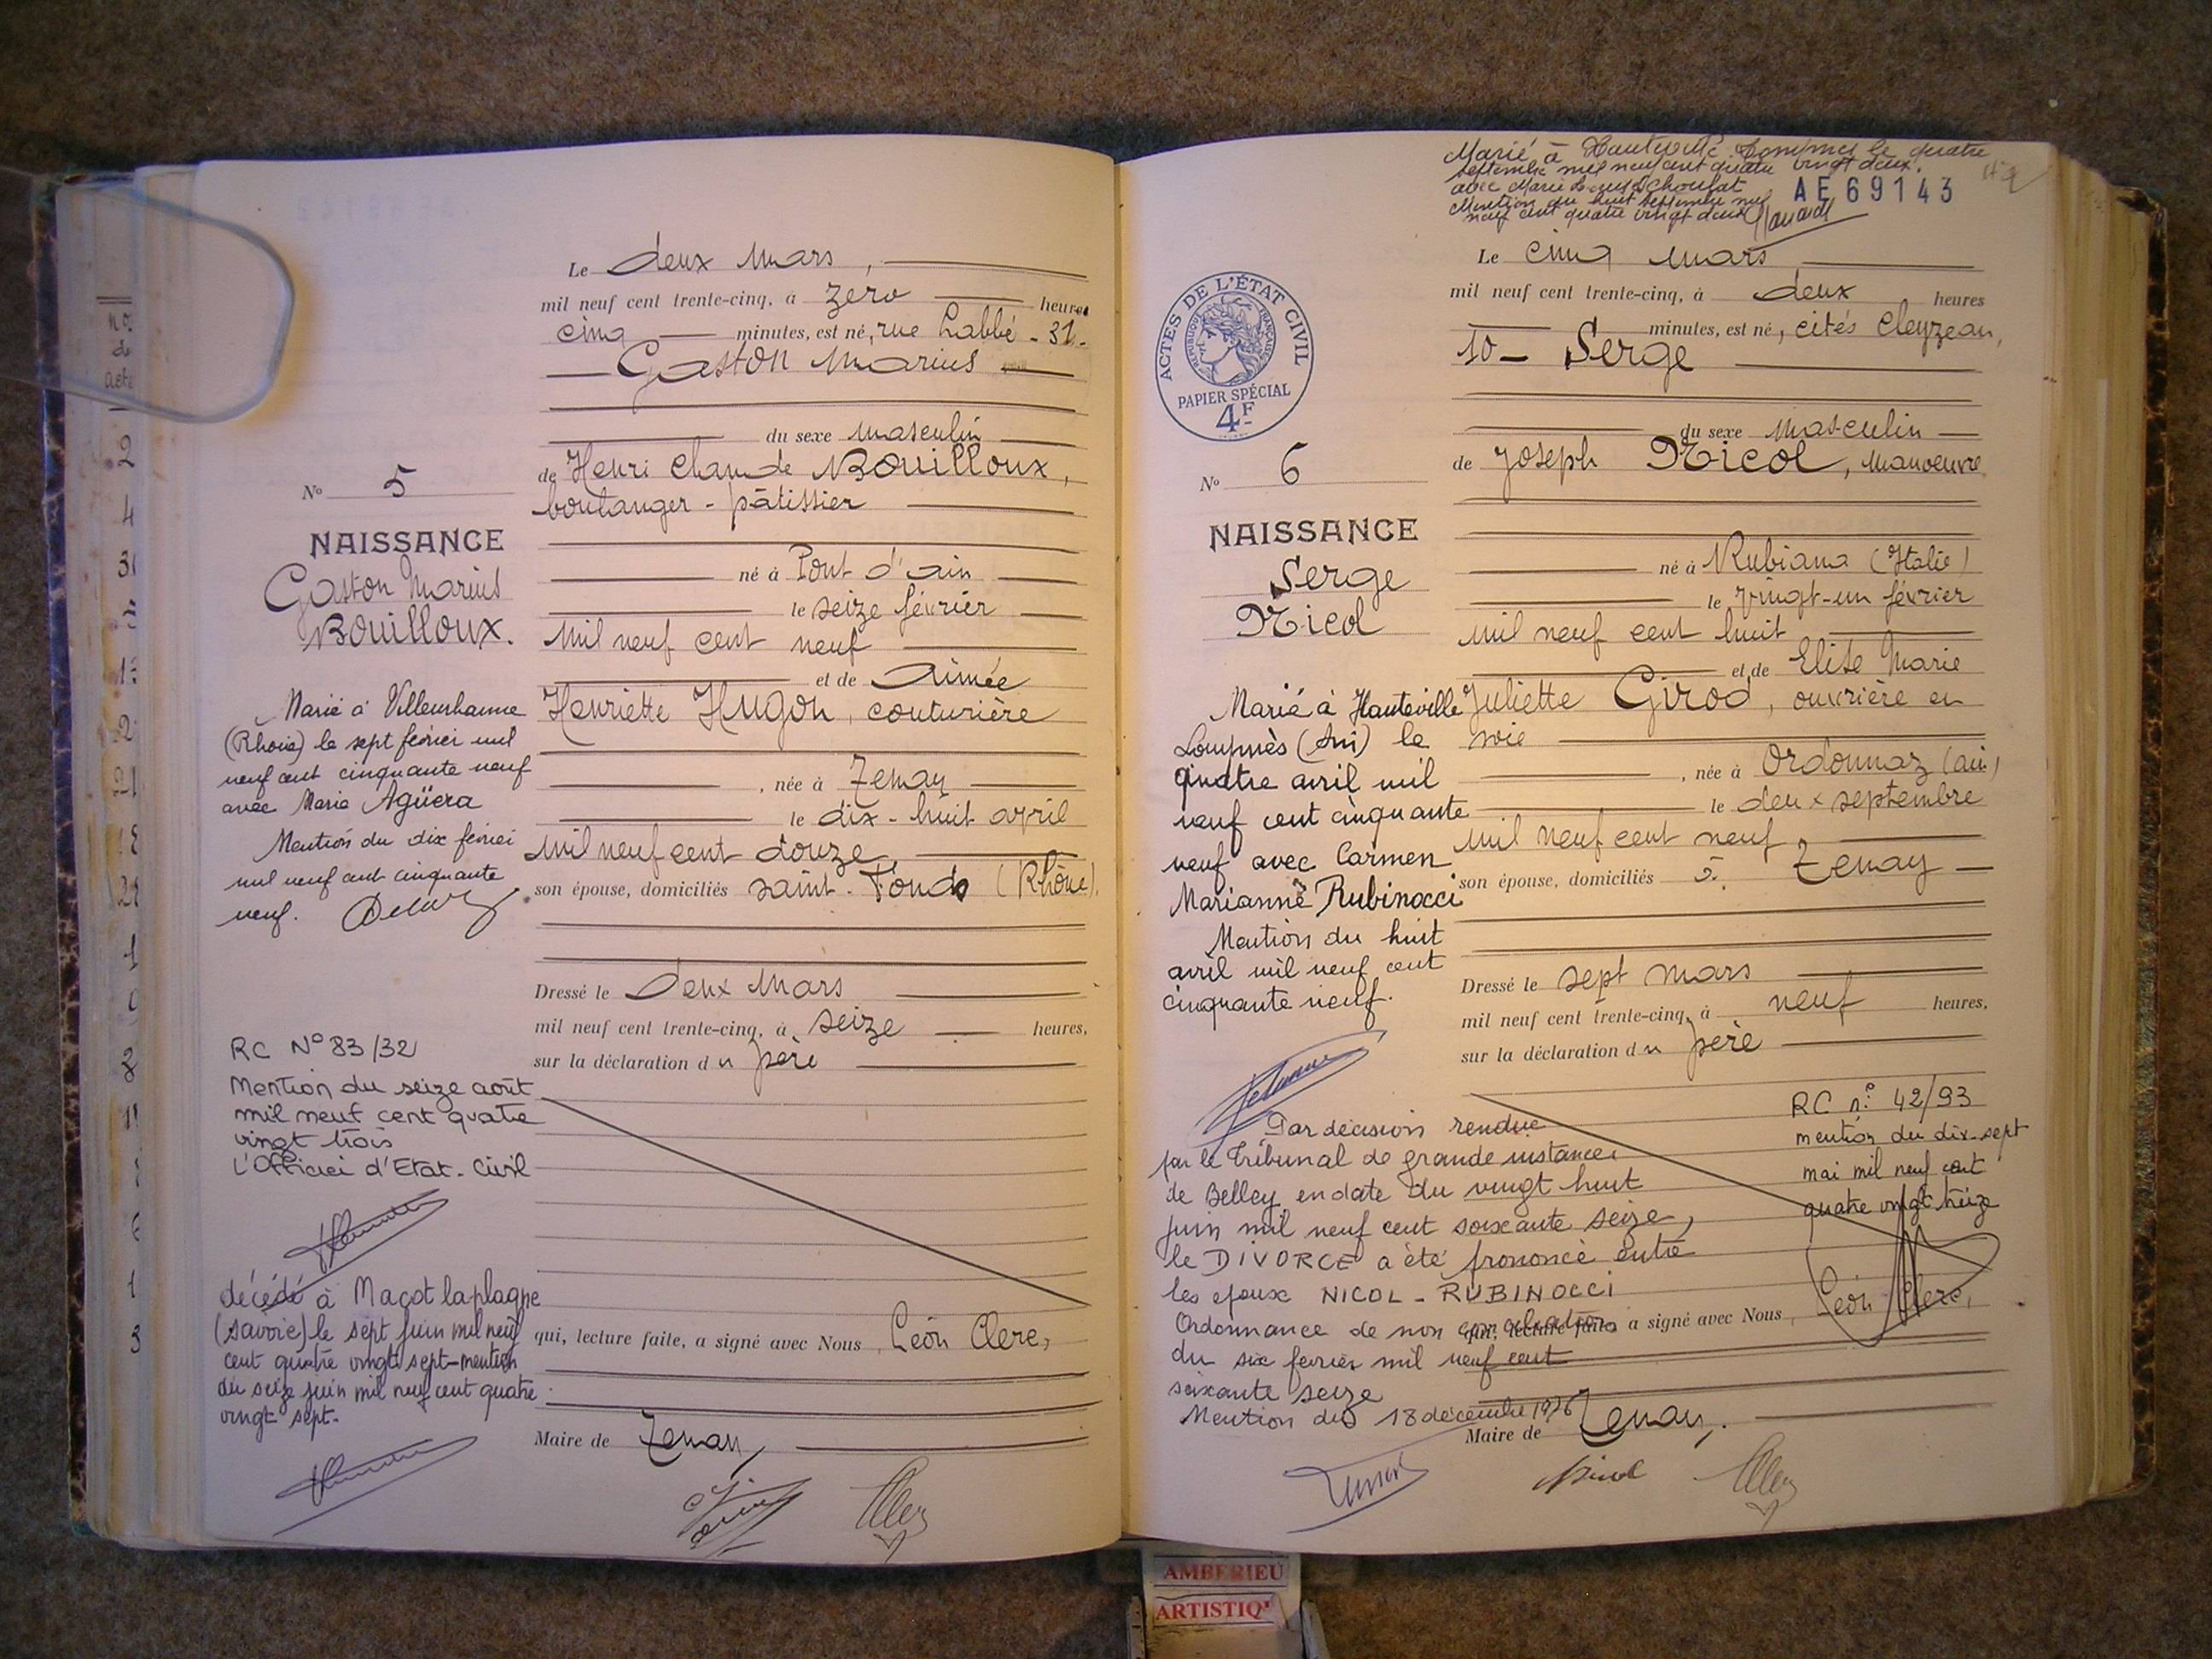 Le deux mars,
mil neuf cent trente-cinq, à zéro heures
cinq minutes, est né, rue Labbé - 31 -
Gaston Marius
du sexe masculin
de Henri Claude Bouilloux,
boulanger - pâtissier
né à Pont d'ain
le seize février
mil neuf cent neuf
et de Aimée
Henriette Hugon, couturière
, née à Tenay
le dix-huit avril
mil neuf cent douze,
son épouse, domiciliés saint-Fonds (Rhône).
Dressé le deux mars
mil neuf cent trente-cinq, à seize heures,
sur la déclaration du père
qui, lecture faite, a signé avec Nous, Léon Clerc,
Maire de Tenay,
No 5
NAISSANCE
Gaston Marius
Bouilloux.
Marié à Villeurbanne
(Rhône) le sept février mil
neuf cent cinquante neuf
avec Maria Agüera
Mention du dix février
mil neuf cent cinquante
neuf.
RC No 83/32
Mention du seize août
mil neuf cent quatre
vingt trois
L'Officier d'Etat-Civil
décédé à Maçot laplagne
(savoie) le sept juin mil neuf
cent quatre vingt sept-mention
du seize juin mil neuf cent quatre
vingt sept-
Marié à Hauteville Lompnes le quatre
septembre mil neuf cent quatre vingt deux.
avec Marie
Mention du huit septembre mil
neuf cent quatre vingt deux
AE 69143
Le cinq mars
mil neuf cent trente-cinq, à deux heures
minutes, est né, cités Cleyzeau,
10 - Serge
du sexe masculin
de Joseph Nicol, manoeuvre
né à Rubiana (Italie)
le vingt-un février
mil neuf cent huit
et de Elise Marie
Juliette Girod, ouvrière en
soie
, née à Ordonnaz (ain)
le deux septembre
mil neuf cent neuf
son épouse, domiciliés à Tenay
Dressé le sept mars
mil neuf cent trente-cinq, à neuf heures,
sur la déclaration du père
qui, lecture faite, a signé avec Nous, Léon Clerc,
Maire de Tenay,
Nicol
ACTES DE L'ÉTAT CIVIL
RÉPUBLIQUE FRANÇAISE
PAPIER SPÉCIAL
4F
No 6
NAISSANCE
Serge
Nicol
Marié à Hauteville
Lompnès (Ain) le
quatre avril mil
neuf cent cinquante
neuf avec Carmen
Marianne Rubinocci
Mention du huit
avril mil neuf cent
cinquante neuf.
Par décision rendue
par le Tribunal de grande instance
de Belley en date du vingt huit
juin mil neuf cent soixante seize,
le DIVORCE a été prononcé entre
les époux NICOL - RUBINOCCI
Ordonnance de non conciliation
du six février mil neuf cent
soixante seize
Mention du 18 décembre 1976
RC n° 42/93
mention du dix-sept
mai mil neuf cent
quatre vingt treize
AMBERIEU
ARTISTIQ'